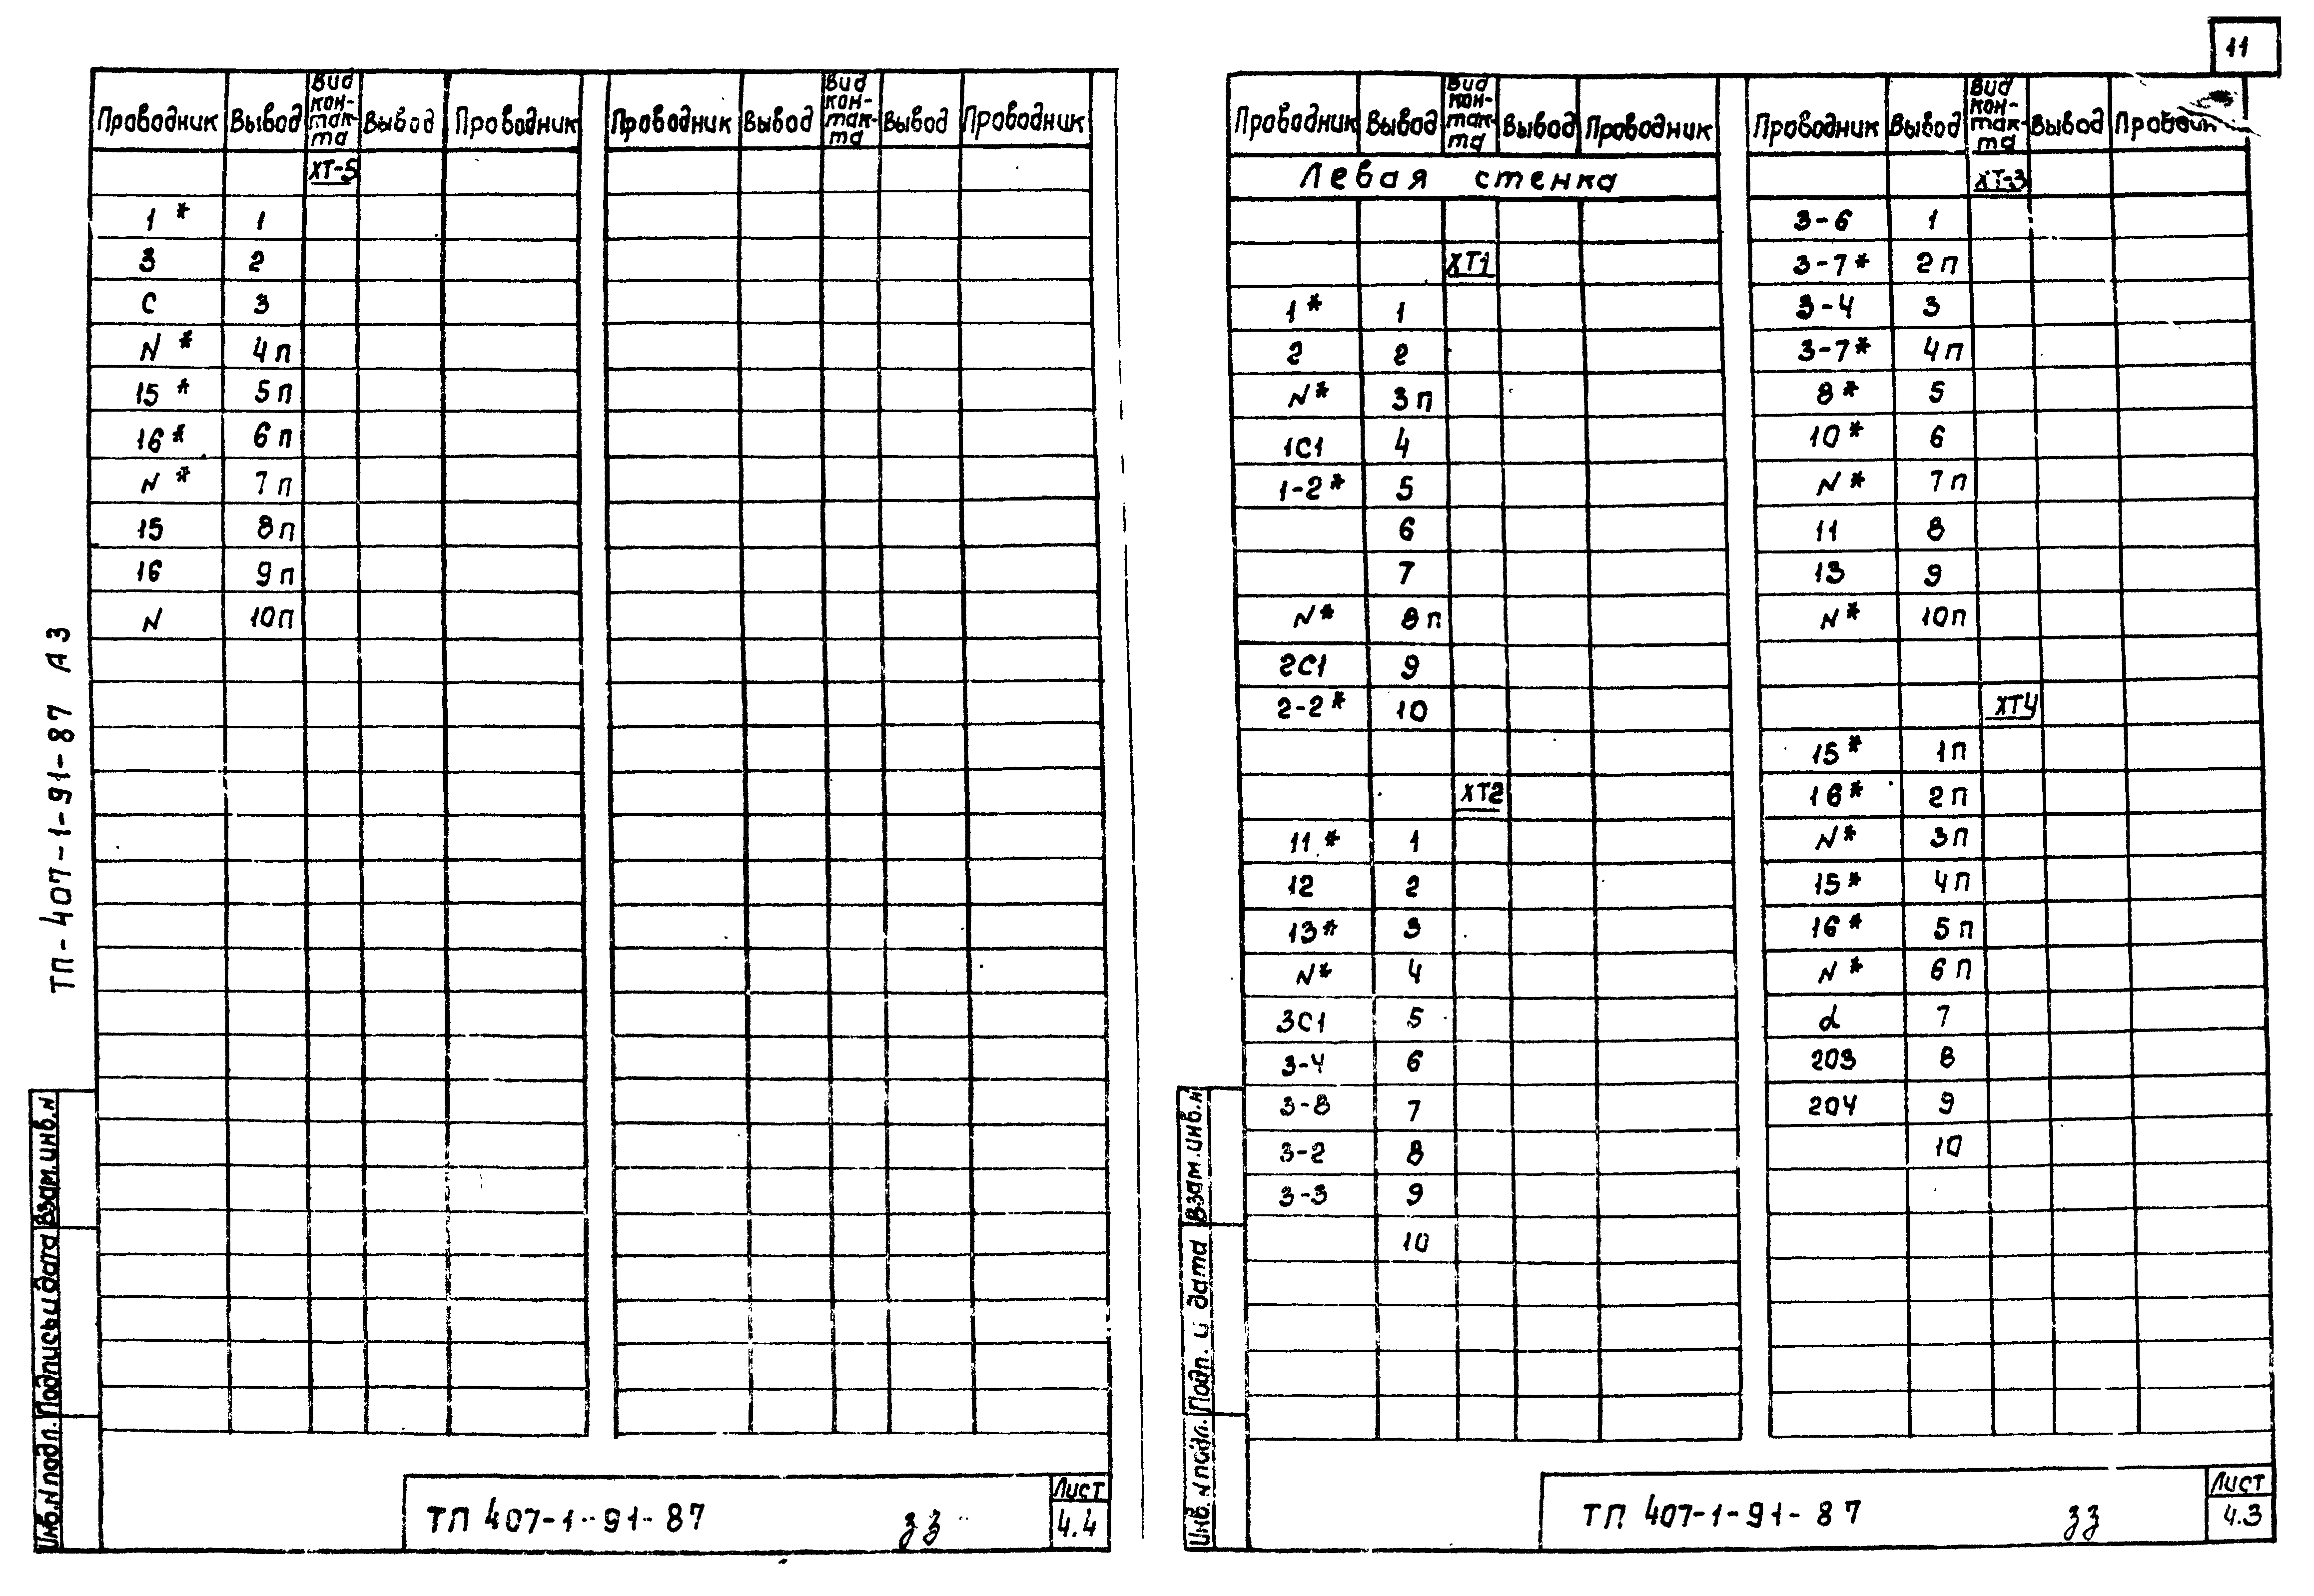 11
Проводник Вывод Вид кон-так-та Вывод Проводник Проводник Вывод Вид кон-так-та Вывод Проводник
ХТ-5
1* 1
3 2
С 3
N* 4п
15* 5п
16* 6п
N* 7п
15 8п
16 9п
N 10п
ТП-407-1-91-87 А3
Взам.инв.N
Подпись и дата
Инв.N подл.
ТП 407-1-91-87 33
Лист
4.4
Проводник Вывод Вид кон-так-та Вывод Проводник
Левая стенка
ХТ1
1* 1
2 2
N* 3п
1С1 4
1-2* 5
6
7
N* 8п
2С1 9
2-2* 10
ХТ2
11* 1
12 2
13* 3
N* 4
3С1 5
3-4 6
3-8 7
3-2 8
3-3 9
10
Проводник Вывод Вид кон-так-та Вывод
ХТ-3
3-6 1
3-7* 2п
3-4 3
3-7* 4п
8* 5
10* 6
N* 7п
11 8
13 9
N* 10п
ХТ4
15* 1п
16* 2п
N* 3п
15* 4п
16* 5п
N* 6п
d 7
203 8
204 9
10
Взам.инв.N
Подп. и дата
Инв.N подл.
ТП 407-1-91-87 33
Лист
4.3